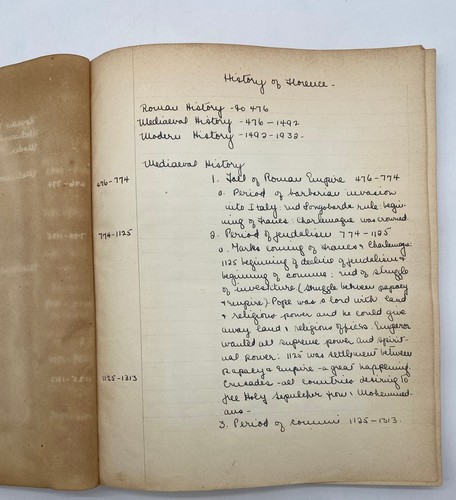 History of Florence -
Roman History - to 476
Mediaeval History - 476 - 1492
Modern History - 1492 - 1932.
Mediaeval History
476-774 1. Fall of Roman Empire 476-774
a. Period of barbarian invasion
into Italy: end Longobards rule: begin-
ning of Francs: Charlemagne was crowned.
774-1125 2. Period of feudalism 774-1125
a. Marks coming of Francs & Charlemagne
1125 beginning of decline of feudalism &
beginning of communes: end of struggle
of investiture (struggle between papacy
& empire) Pope was a lord with land
& religious power and he could give
away land & religious offices. Emperor
wanted all supreme power and spirit-
ual power: 1125 was settlement between
Papacy & Empire - a great happening.
1125-1313 Crusades - all countries desiring to
free Holy Sepulcher from Mohammed-
ans -
3. Period of communi 1125-1313.